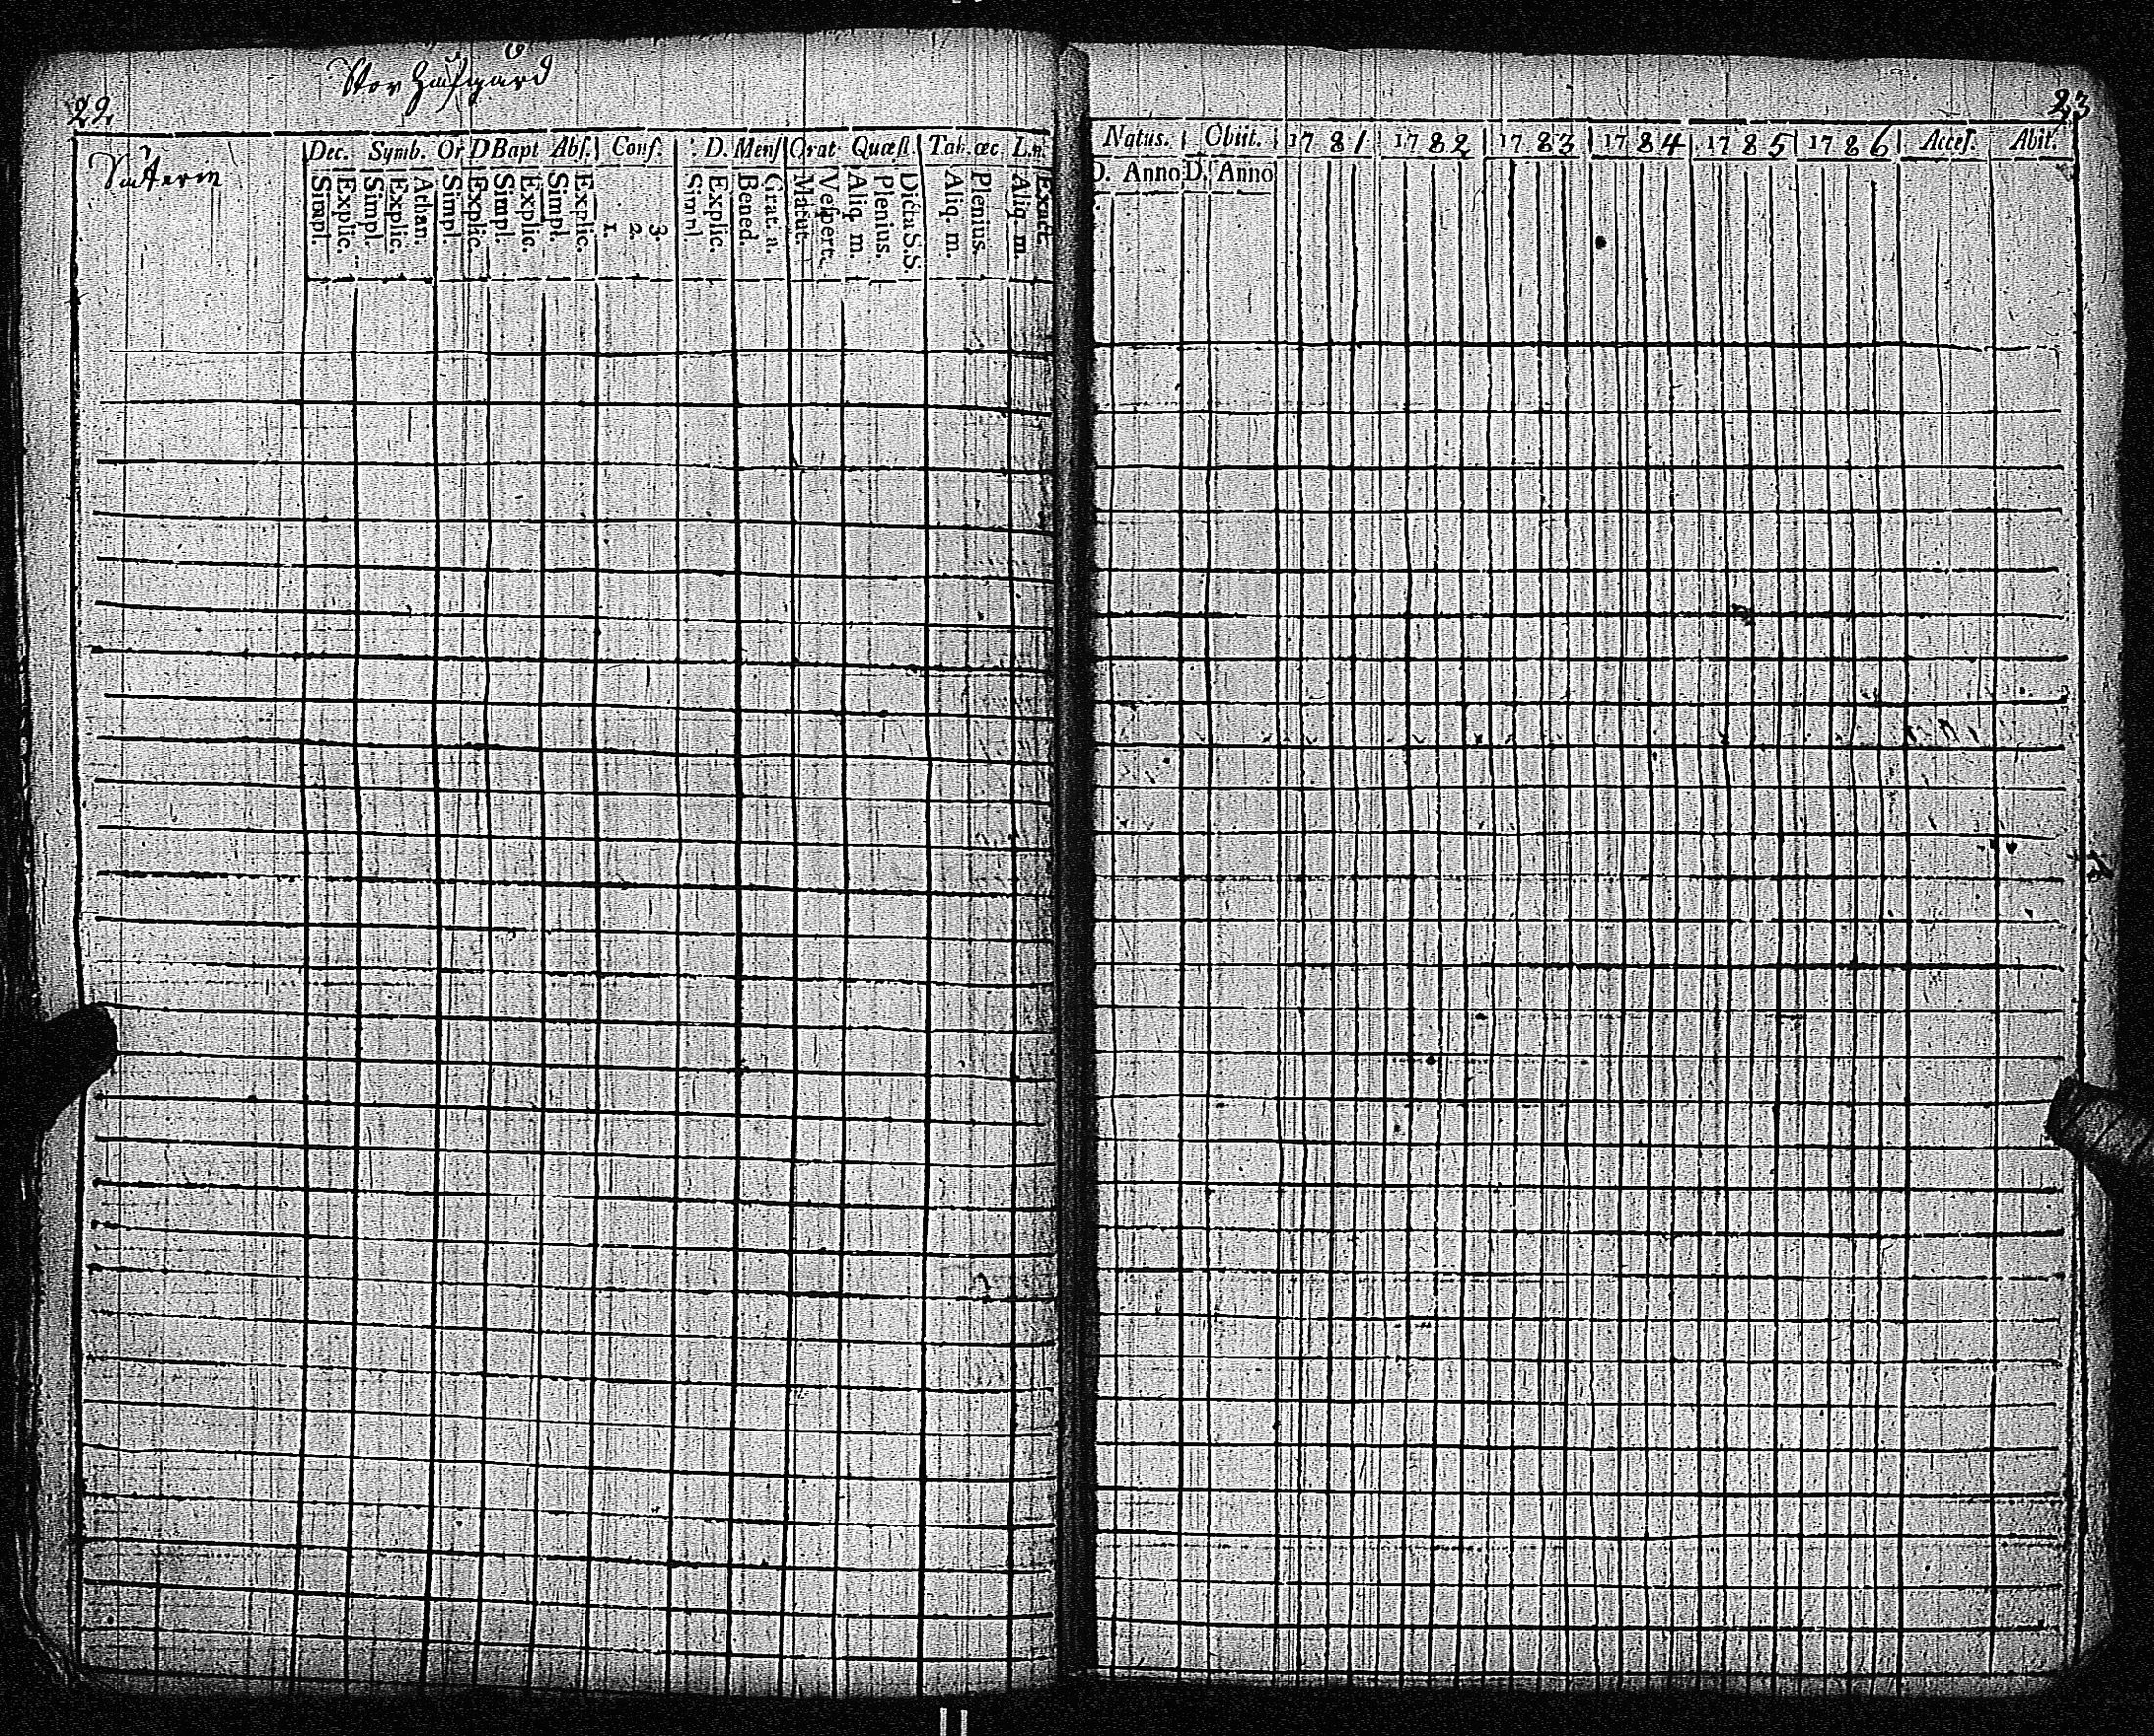 22
Säterin
Dec. Symb. Or D Bapt Abs. Conf. D. Mens Orat. Quæst. Tab. œc L.n.
Simpl. Explic. Simpl. Explic. Athan. Simpl. Explic. Simpl. Explic. Simpl. Explic. 1. 2. 3. Simpl. Explic. Bened. Grat. a. Matut. Vespert. Aliq. m. Plenius. Dicta S.S. Aliq. m. Plenius. Aliq. m. Exact.
23
Natus. Obiit. 1781 1782 1783 1784 1785 1786 Acces. Abit.
D. Anno D. Anno